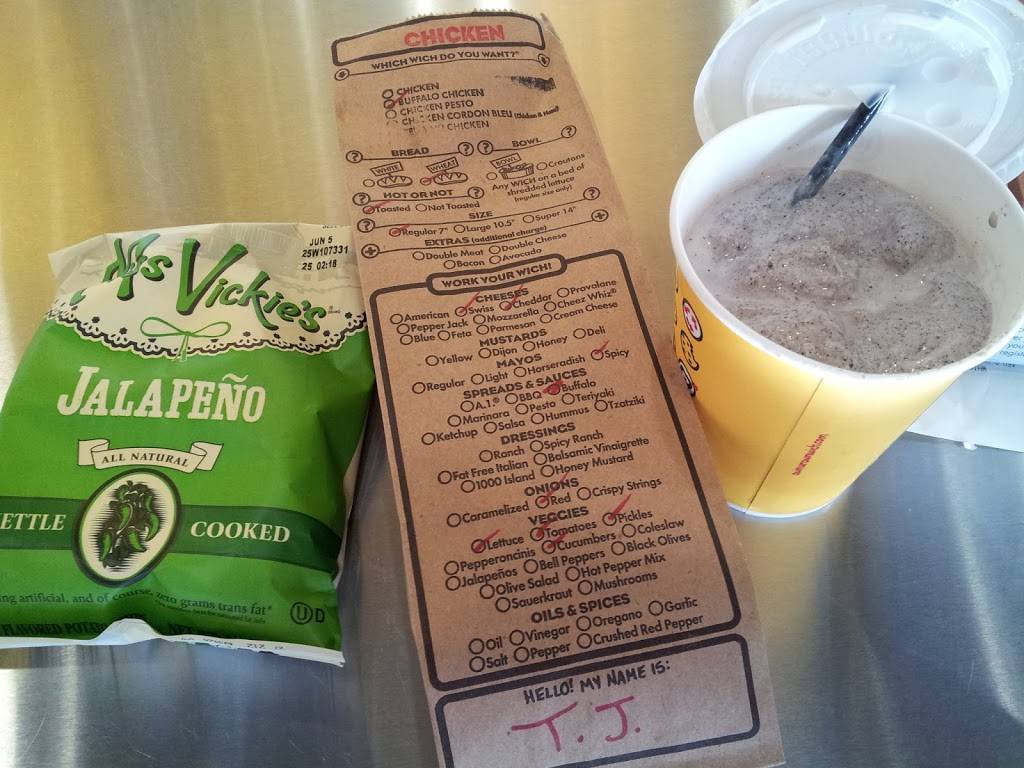 Ms Vickie's
JUN 5
25W107331
25 02:18
JALAPEÑO
ALL NATURAL
KETTLE COOKED
ing artificial, and of course, zero grams trans fat*
FLAVORED
U D
CHICKEN
WHICH WICH DO YOU WANT?®
CHICKEN
BUFFALO CHICKEN
CHICKEN PESTO
CHICKEN CORDON BLEU (Chicken & Ham)
CHICKEN
BREAD
WHITE WHEAT
BOWL
BOWL Croutons
Any WICH on a bed of
shredded lettuce
(regular size only)
HOT OR NOT
Toasted Not Toasted
SIZE
Regular 7" Large 10.5" Super 14"
EXTRAS (additional charge)
Double Meat Double Cheese
Bacon Avocado
WORK YOUR WICH!
CHEESES
American Swiss Cheddar Provolone
Pepper Jack Mozzarella Cheez Whiz®
Blue Feta Parmesan Cream Cheese
MUSTARDS
Yellow Dijon Honey Deli
MAYOS
Regular Light Horseradish Spicy
SPREADS & SAUCES
A.1.® BBQ Buffalo
Marinara Pesto Teriyaki
Ketchup Salsa Hummus Tzatziki
DRESSINGS
Ranch Spicy Ranch
Fat Free Italian Balsamic Vinaigrette
1000 Island Honey Mustard
ONIONS
Caramelized Red Crispy Strings
VEGGIES
Lettuce Tomatoes Pickles
Pepperoncinis Cucumbers Coleslaw
Jalapeños Bell Peppers Black Olives
Olive Salad Hot Pepper Mix
Sauerkraut Mushrooms
OILS & SPICES
Oil Vinegar Oregano Garlic
Salt Pepper Crushed Red Pepper
HELLO! MY NAME IS:
T. J.